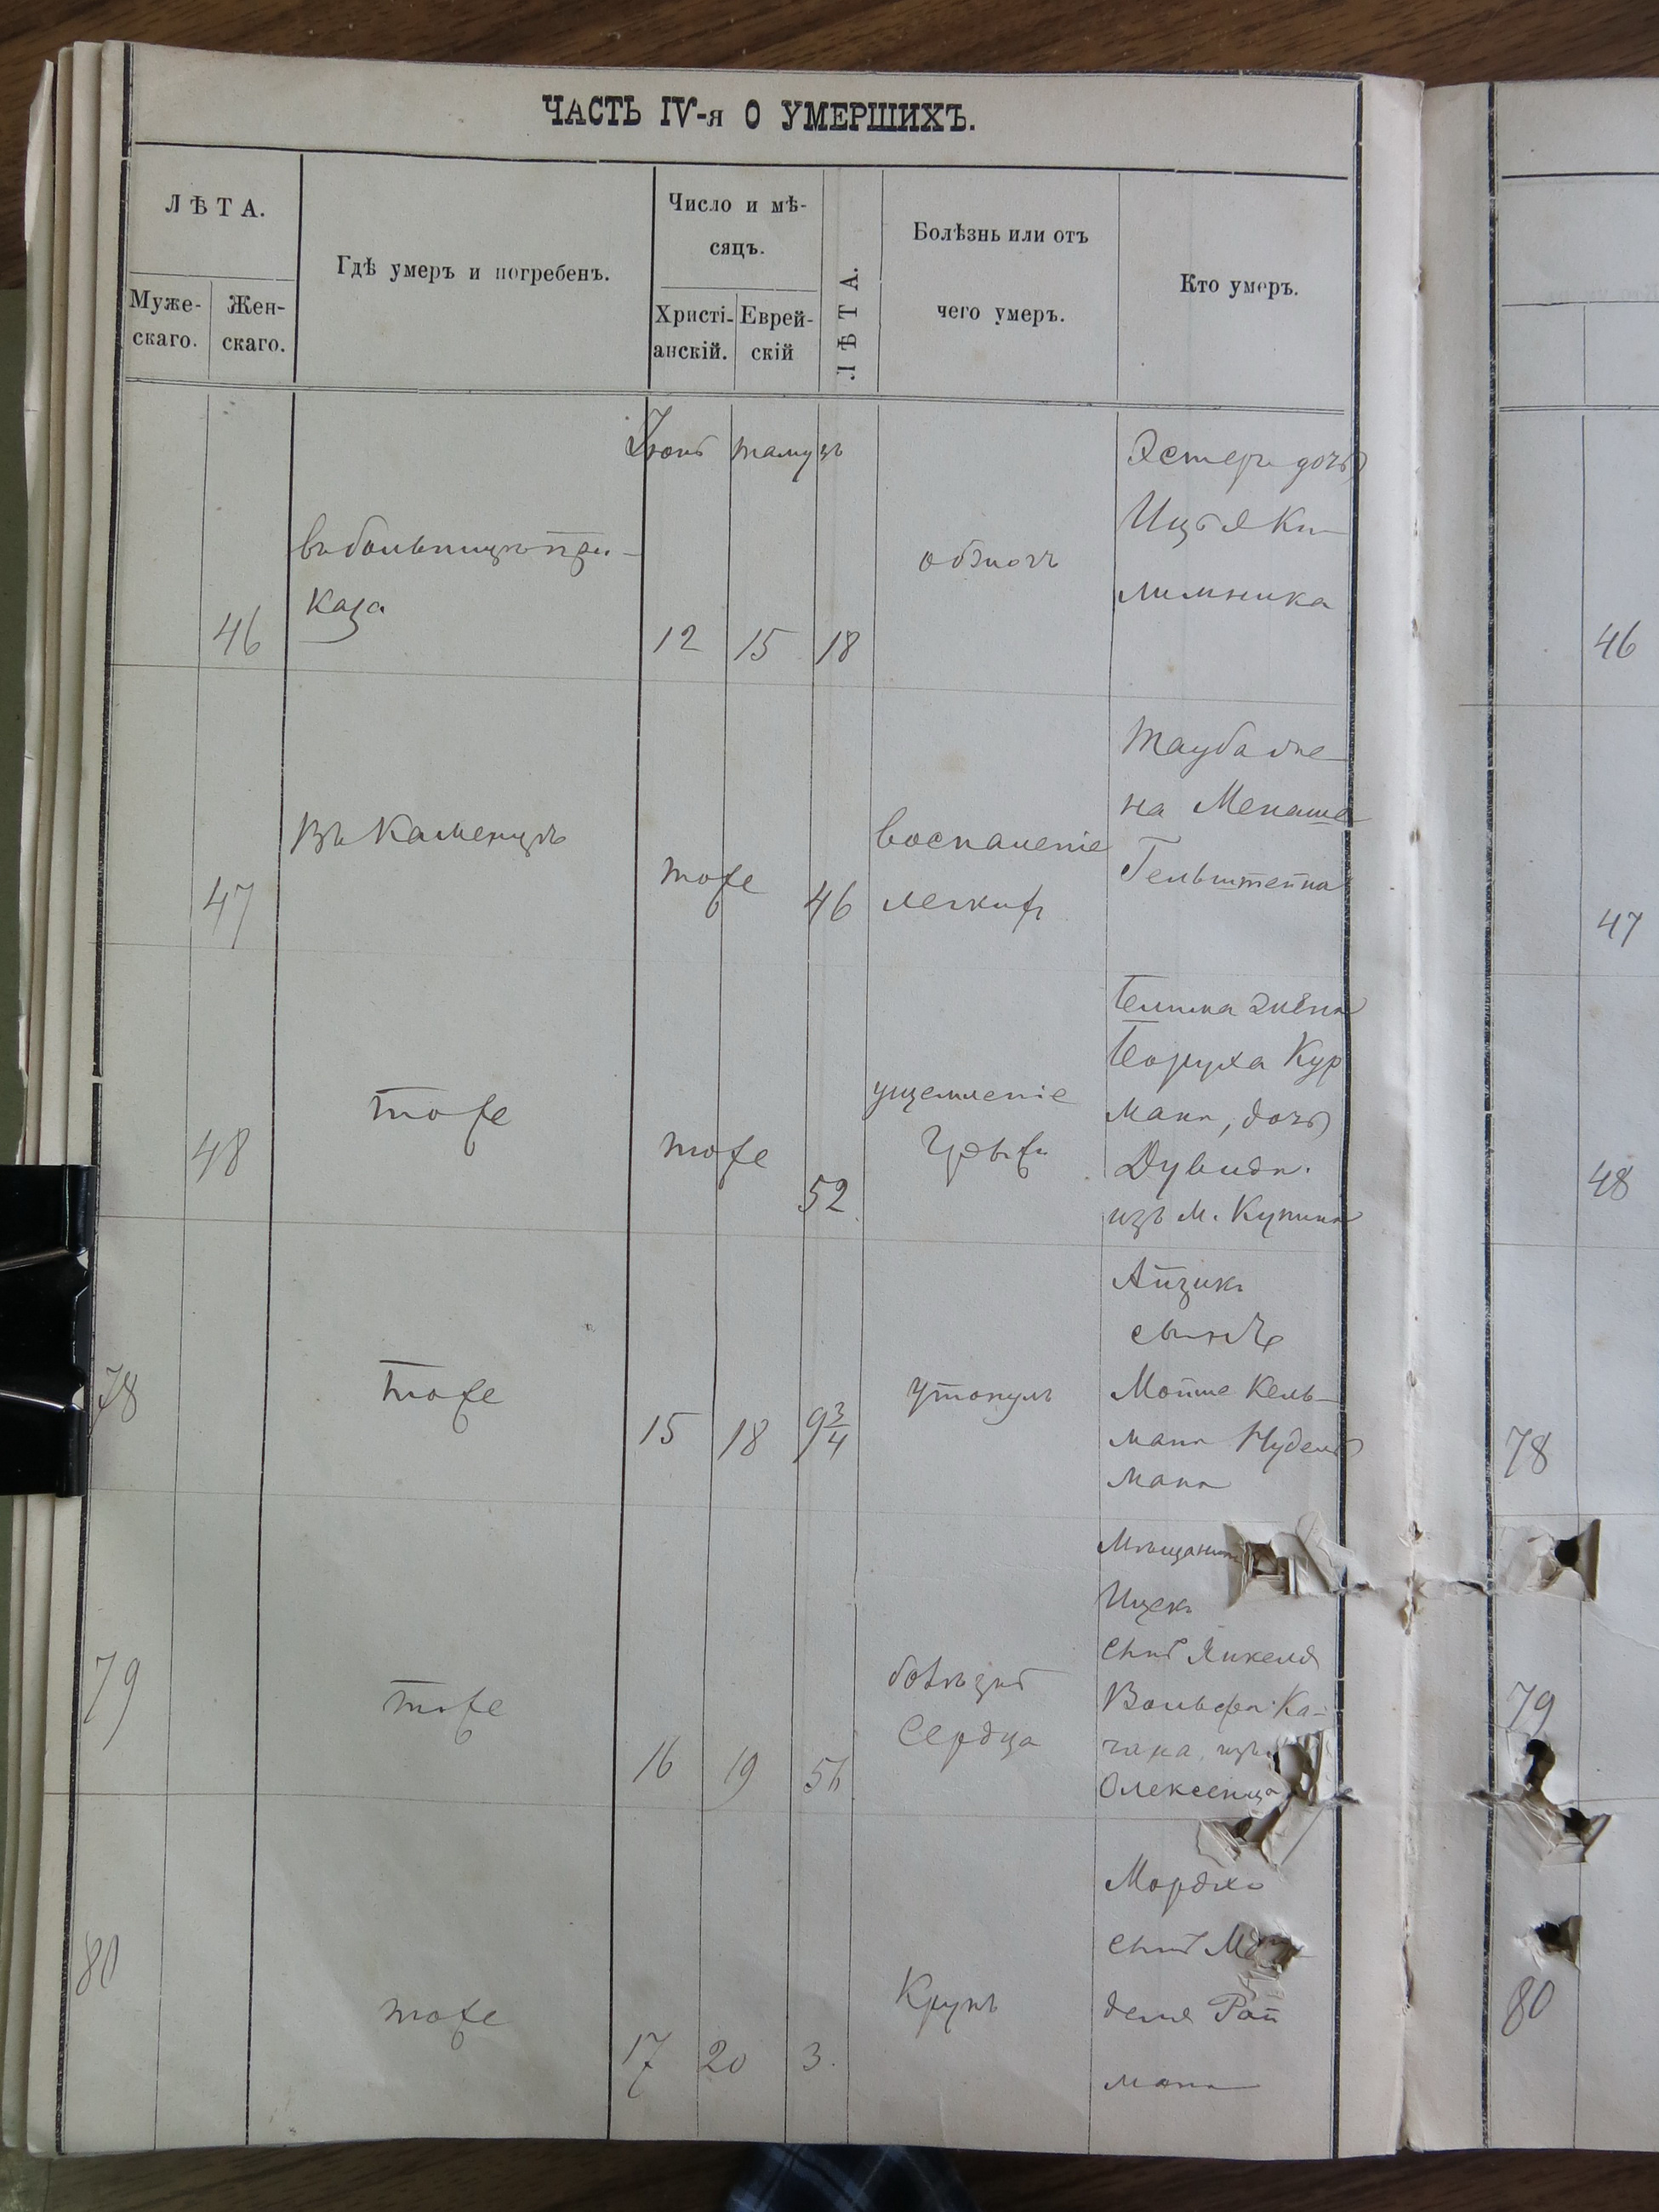 ЧАСТЬ IV-я О УМЕРШИХЪ.
ЛѢТА.
Муже-
скаго.
Жен-
скаго.
Гдѣ умеръ и погребенъ.
Число и мѣ-
сяцъ.
Христі-
анскій.
Еврей-
скій
ЛѢТА.
Болѣзнь или отъ
чего умеръ.
Кто умеръ.
Іюнь тамузъ
46
въ больницѣ при-
каза
12 15 18
Эстеръ дочь
Ицъя Ки-
лимника
46
47
Въ Каменцѣ
тоже
46
воспаленіе
легкихъ
Тауба же-
на Менаше
Гельштейна
47
48
тоже
тоже
52
ущемленіе
грыжи
жена
Боруха Кур
мана, дочь
Дувида.
изъ м. Купина
48
78
тоже
15 18 9 3/4
утонулъ
Айзикъ
сынъ
Мойше Кель-
мана Нудель
мана
78
79
тоже
16 19 56
болѣзнь
сердца
Мѣщанинъ
Ицекъ
сынъ Янкеля
Вольфа Ка-
чака, изъ
Олексенца
79
80
тоже
17 20 3.
Крупъ
Мордко
сынъ
деля Рой
мана
80